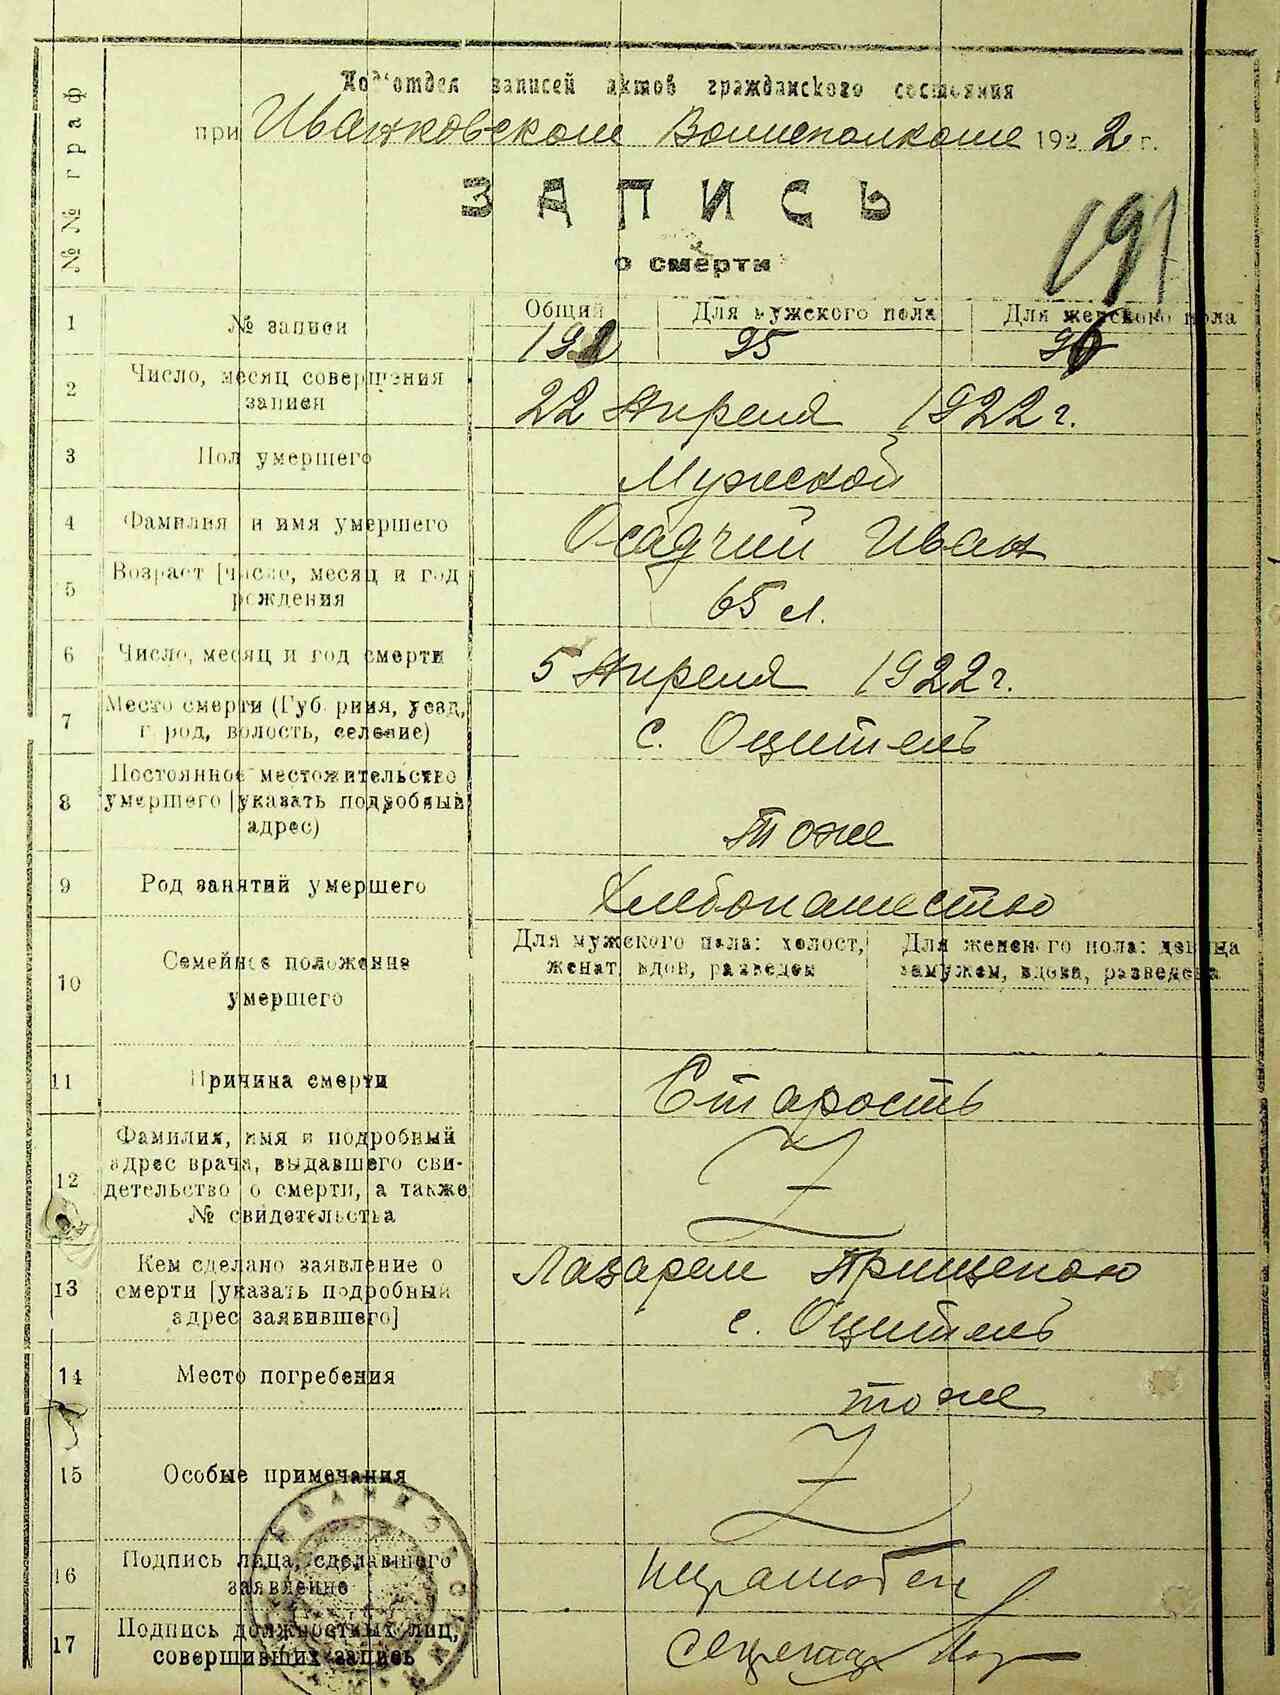 Под'отдел записей актов гражданского состояния
при Иванковском Волисполкоме 1922 г.
ЗАПИСЬ
о смерти
191
№№ граф
1 № записи Общий Для мужского пола Для женского пола
191 95 96
2 Число, месяц совершения записи
22 Апреля 1922 г.
3 Пол умершего
Мужской
4 Фамилия и имя умершего
Осадчий Иван
5 Возраст [число, месяц и год рождения
65 л.
6 Число, месяц и год смерти
5 Апреля 1922 г.
7 Место смерти (Губерния, уезд,
город, волость, селение)
с. Оцитель
8 Постоянное местожительство
умершего [указать подробный
адрес)
тоже
9 Род занятий умершего
Хлебопашество
10 Семейное положение
умершего
Для мужского пола: холост,
женат, вдов, разведен
Для женского пола: девица
замужем, вдова, разведена
11 Причина смерти
Старость
12 Фамилия, имя и подробный
адрес врача, выдавшего сви-
детельство о смерти, а также
№ свидетельства
13 Кем сделано заявление о
смерти [указать подробный
адрес заявившего]
Лазарем Прищепою
с. Оцитель
14 Место погребения
тоже
15 Особые примечания
16 Подпись лица, сделавшего
заявление
17 Подпись должностных лиц,
совершивших запись